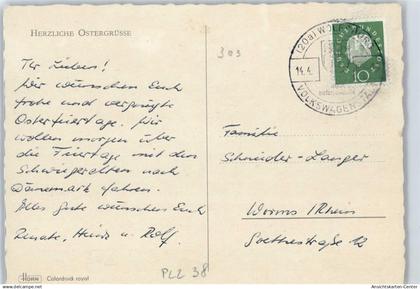 HERZLICHE OSTERGRÜSSE
Ihr Lieben!
Wir wünschen Euch
frohe und vergnügte
Osterfeiertage. Wir
wollen morgen über
die Feiertage mit den
Schwiegereltern nach
Dänemark fahren.
Alles Gute wünschen Euch
Renate, Heinz u. Rolf.
HORN Colordruck royal
PLZ 38
303
(20a) WOLFSBURG
14.4.
VOLKSWAGEN
10
Familie
Schneider-Langer
Worms/Rhein
Goethestraße 12
www.ansichtskarten-center.de